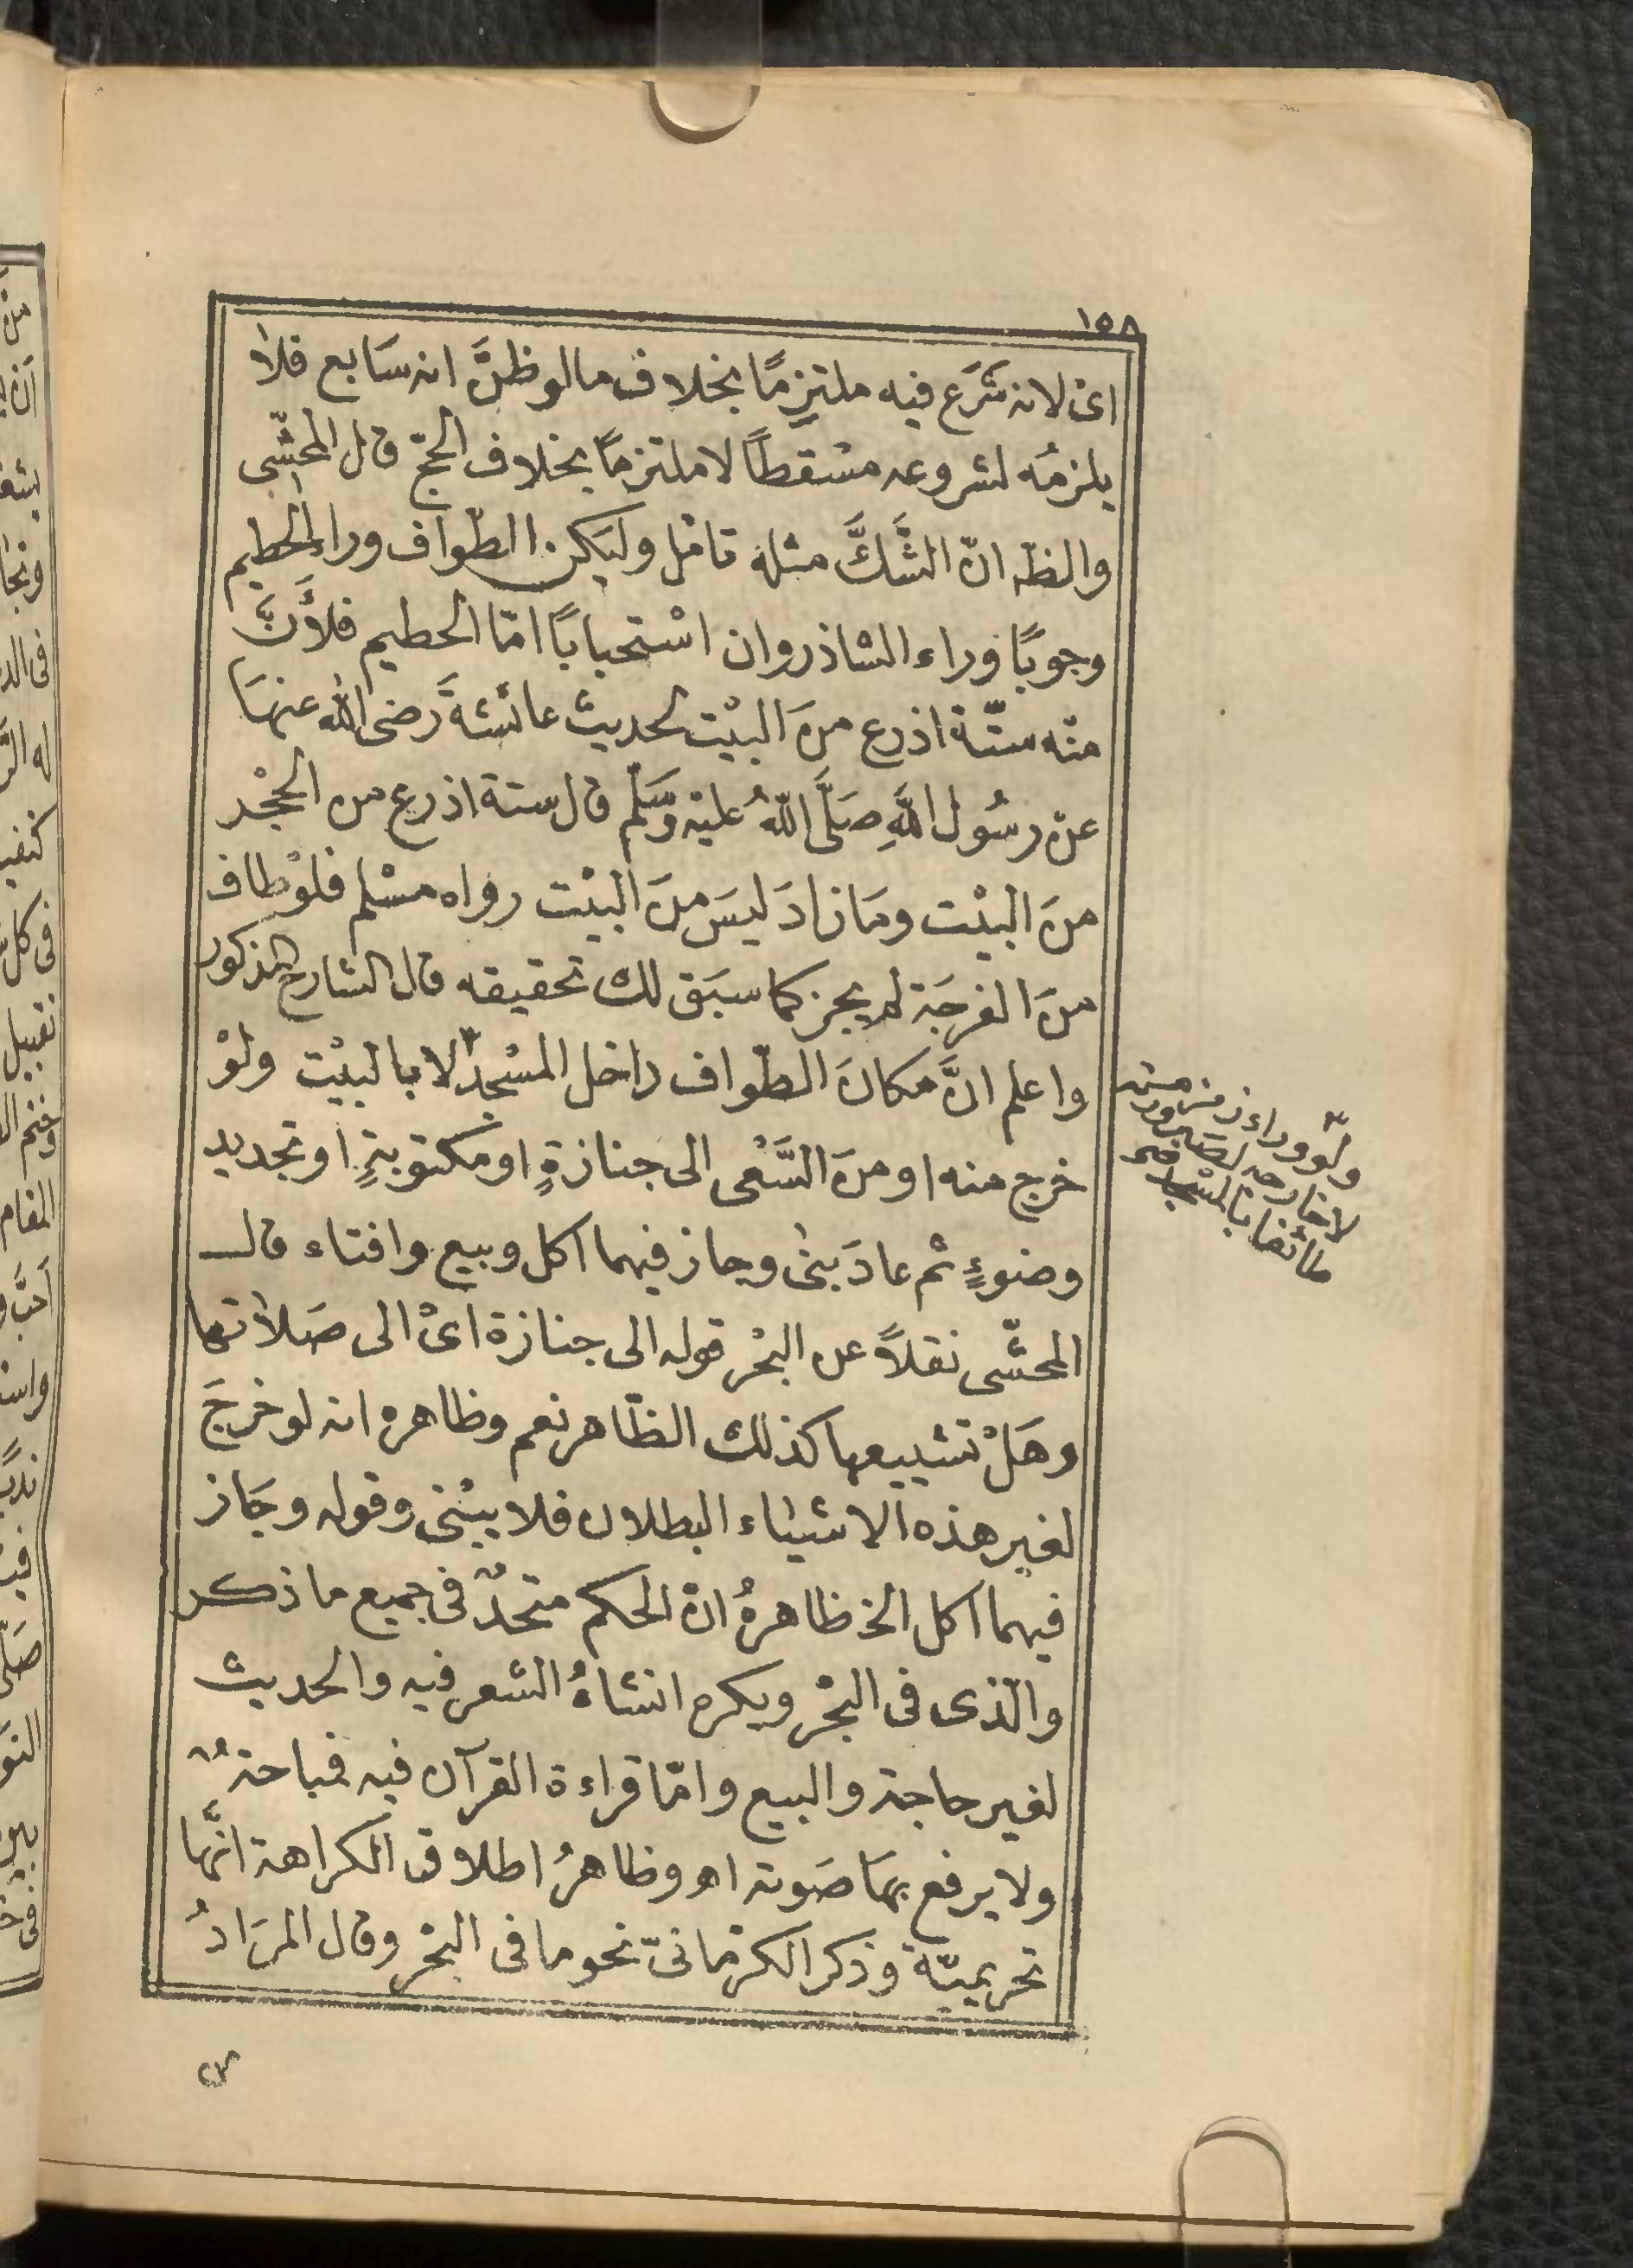 ١٥٨
اى لانه شَرَع فيه ملتزمًا بخلاف مالوظنَّ انه سَابع فلا
يلزمُه لشروعه مسْقطاً لاملتزماً بخلاف الحجّ قال المحشّى
والظه انّ الشَّكَّ مثله تامّل وليَكن الطّواف وراء الحطيم
وجوبًا وراء الشاذروان اسْتحبابًا امّا الحطيم فلأنَّ
منْه ستّة اذرع منَ البيْت لحديث عائشةَ رضى الله عنهَا
عنْ رسُول اللّهِ صَلَّى اللّهُ عليْه وَسَلّم قال ستة اذرع من الحجْر
منَ البيْت ومَا زادَ ليسَ منَ البيْت رواه مسْلم فلوْطاف
منَ الفرجَة لم يجز كما سبَق لك تحقيقه قال الشارح المذكور
واعلم انَّ مكانَ الطّواف داخل المسْجد لا بالبيْت ولوْ
خرج منه او منَ السَّعْى الى جنازةٍ او مكتوبةٍ او تجديد
وضوءٍ ثم عادَ بنى وجاز فيهما اكل وبيع وافتاء قال
المحشّى نقلاً عن البحْر قوله الى جنازة اىْ الى صَلاتها
وهَلْ تشييعها كذلك الظّاهر نعم وظاهره انه لو خرجَ
لغير هذه الاشياء البطلان فلا يبْنى وقوله وجَاز
فيهما اكل الخ ظاهرهُ انّ الحكم متحدٌ فى جميع ما ذكر
والّذى فى البحْر ويكره انشاءُ الشعر فيه والحديث
لغير حاجة والبيع وامّا قراءة القرآن فيه فمباحةٌ
ولا يرفع بهَا صَوته اهـ وظاهرُ اطلاق الكراهة انّها
تحريميّة وذكر الكرمانىّ نحو ما فى البحْر وقال المرَادُ
ولوْ وراء زمزم
لا خارجه لصَيرورته
طائفا بالمسْجد